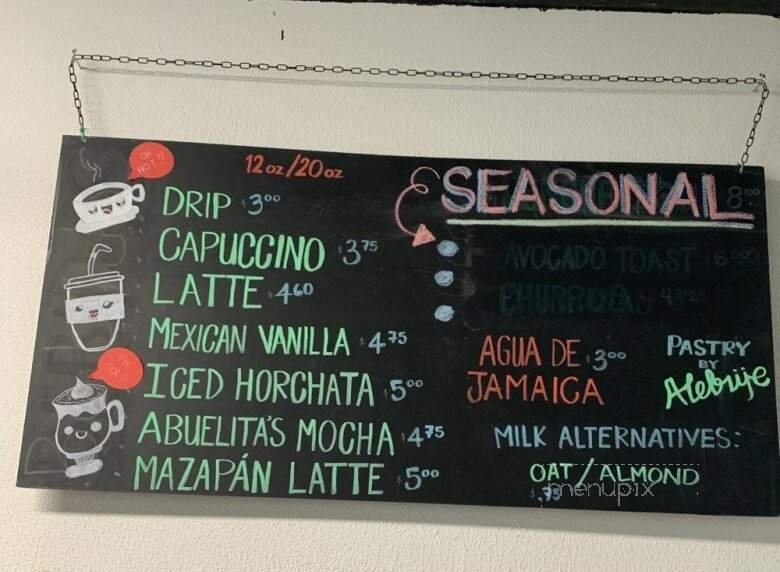 OH HOT!!
12oz/20oz
DRIP $3.00
CAPUCCINO $3.75
LATTE $4.60
MEXICAN VANILLA $4.75
ICED HORCHATA $5.00
ABUELITA'S MOCHA $4.75
MAZAPÁN LATTE $5.00
SEASONAL
AVOCADO TOAST
AGUA DE $3.00
JAMAICA
PASTRY
BY
Alebrije
MILK ALTERNATIVES:
OAT/ALMOND
$.75
menupix